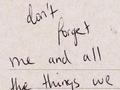 don't
forget
me and all
the things we